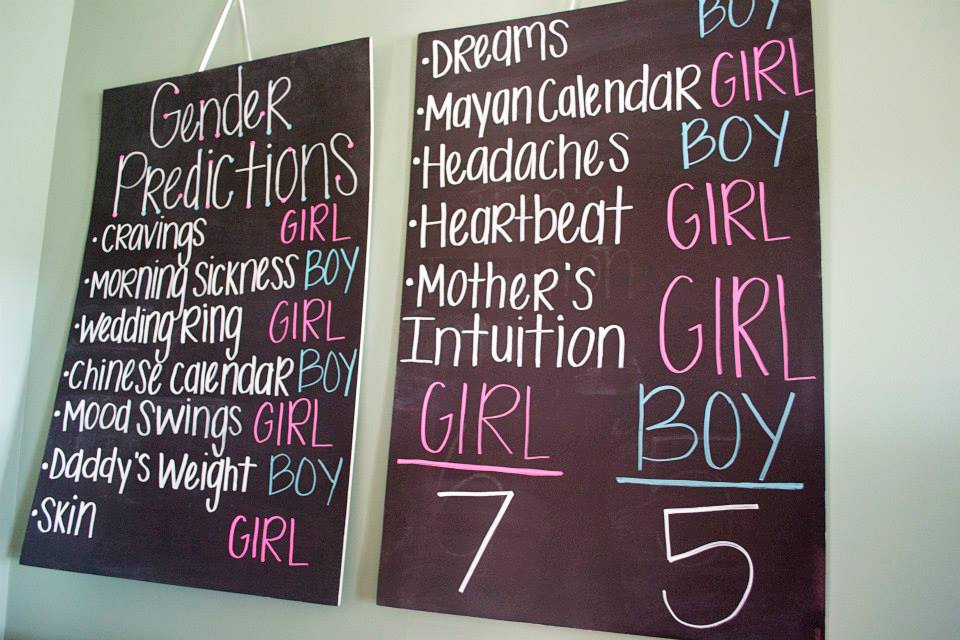 Gender
Predictions
·Cravings GIRL
·Morning Sickness BOY
·Wedding Ring GIRL
·Chinese Calendar BOY
·Mood Swings GIRL
·Daddy's Weight BOY
·Skin GIRL
·Dreams BOY
·Mayan Calendar GIRL
·Headaches BOY
·Heartbeat GIRL
·Mother's
Intuition GIRL
GIRL BOY
7 5